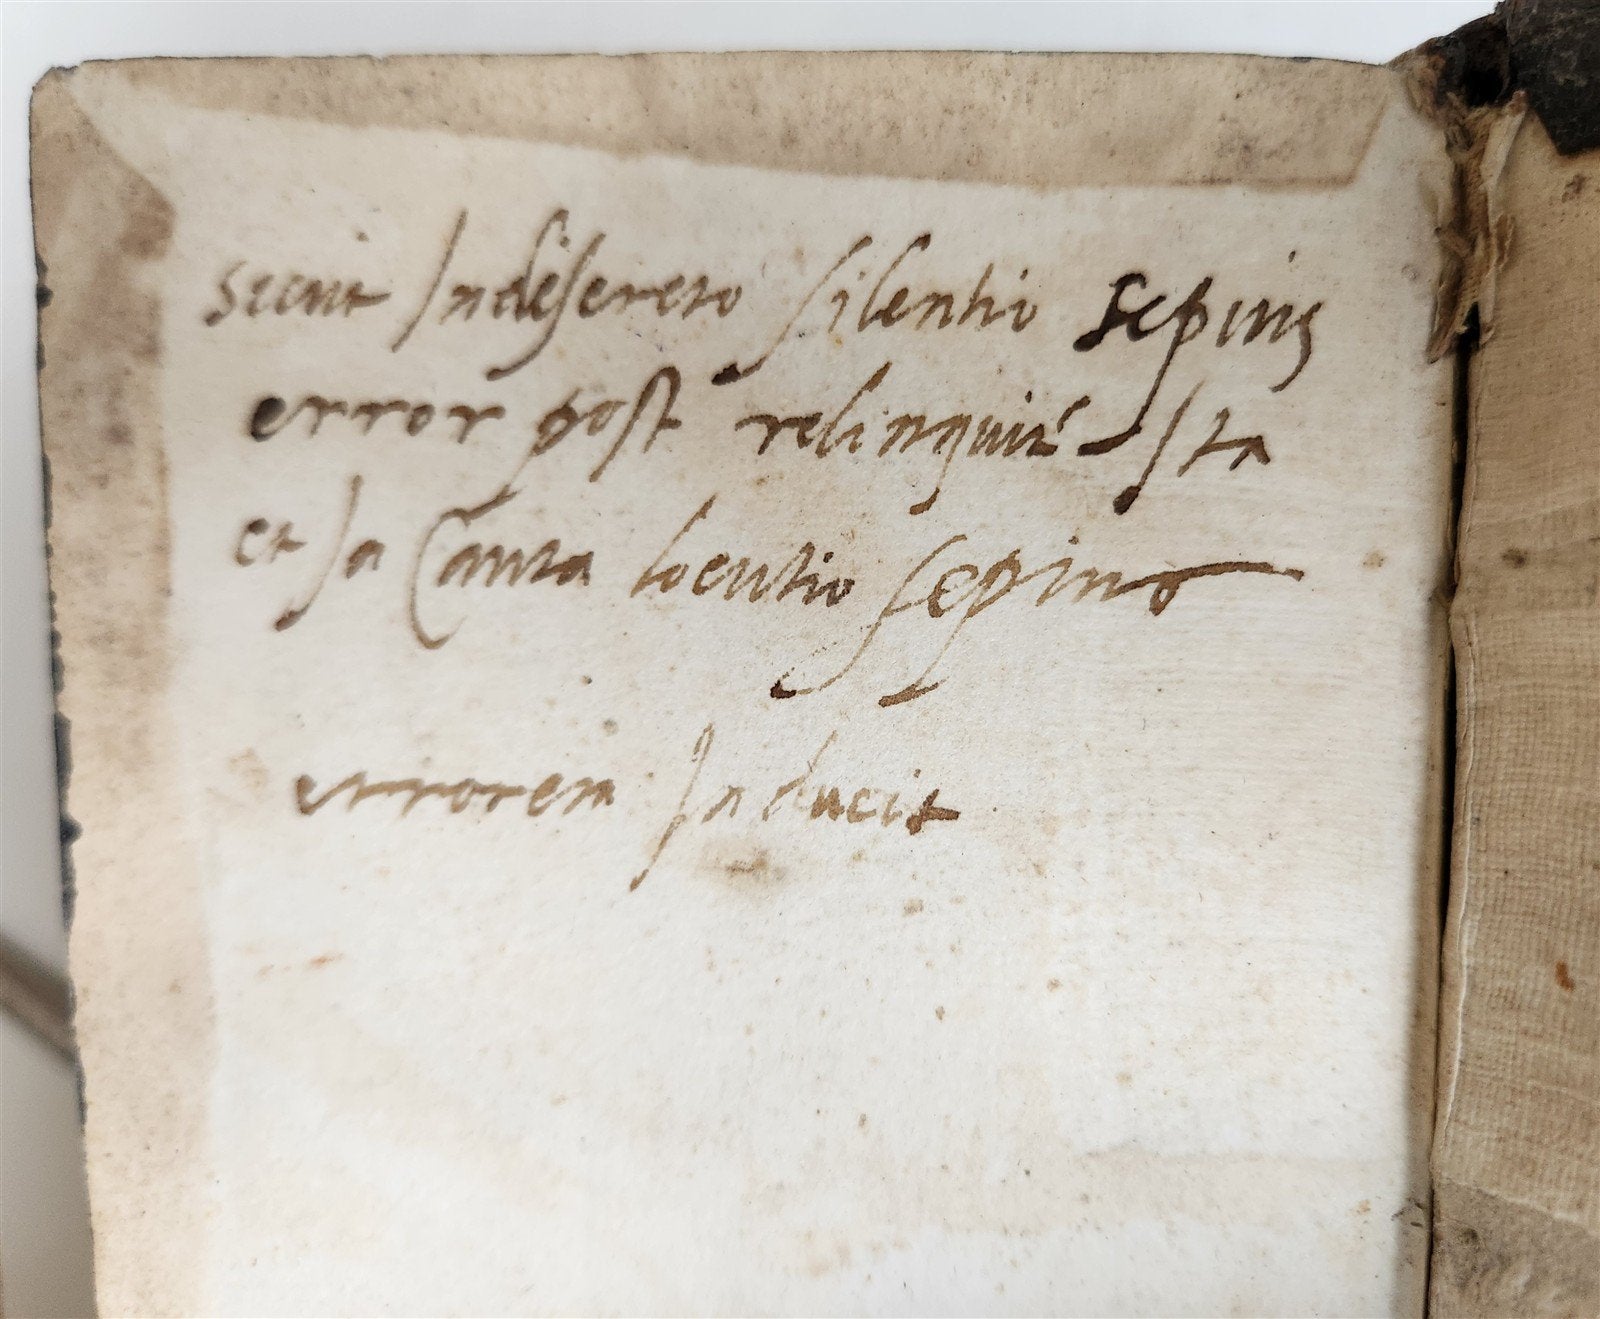 sicut Indiscreto silentio sepius
error post relinquit̃ Ita
et In Cauta locutio sepius
errorem Inducit